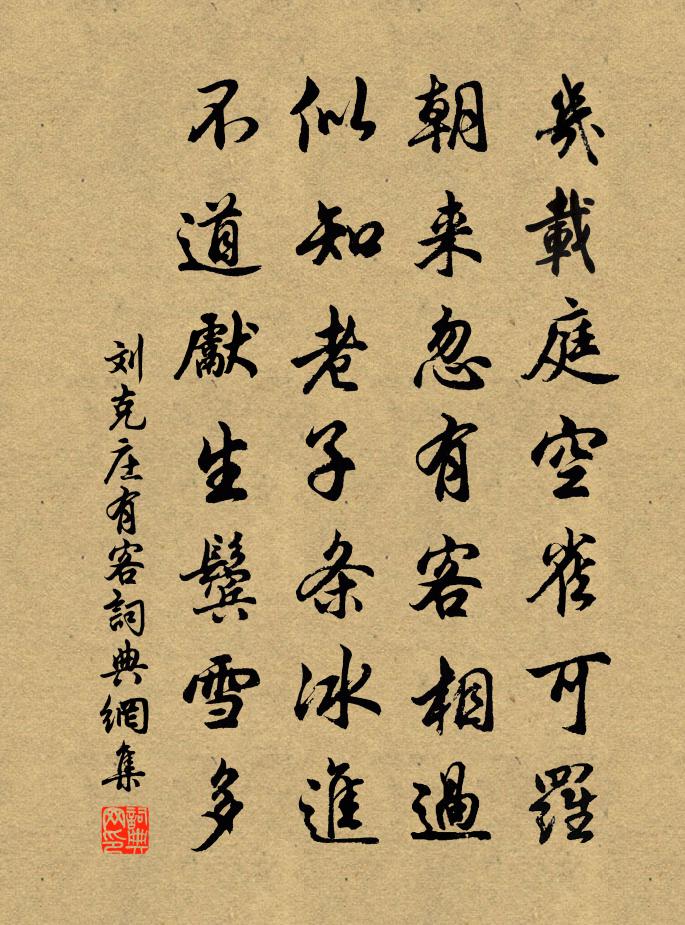 幾載庭空雀可羅
朝来忽有客相過
似知老子条冰進
不道獻生鬓雪多
刘克庄有客詞典網集
詞典网印